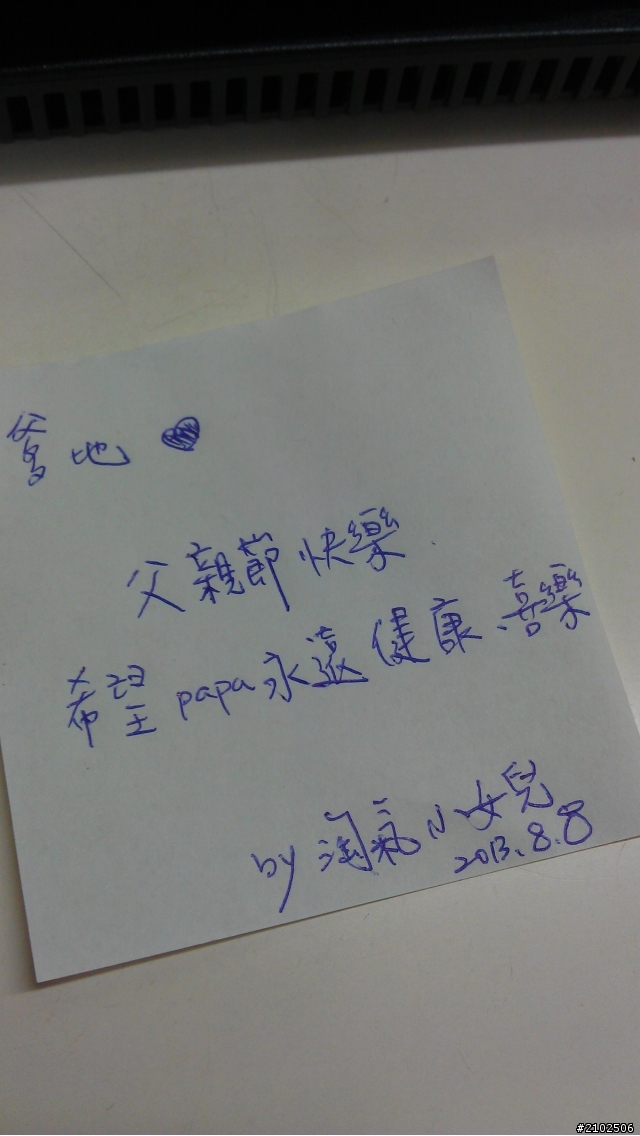 爹地 ♥
父親節快樂
希望papa永遠健康、喜樂
by 淘氣小女兒
2013.8.8
#2102506